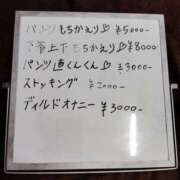 パンツもちかえり♡ ¥5000-
下着上下もちかえり♡ ¥8000-
パンツ直くんくん♡ ¥3000-
ストッキング ¥2000-
ディルドオナニー ¥3000-